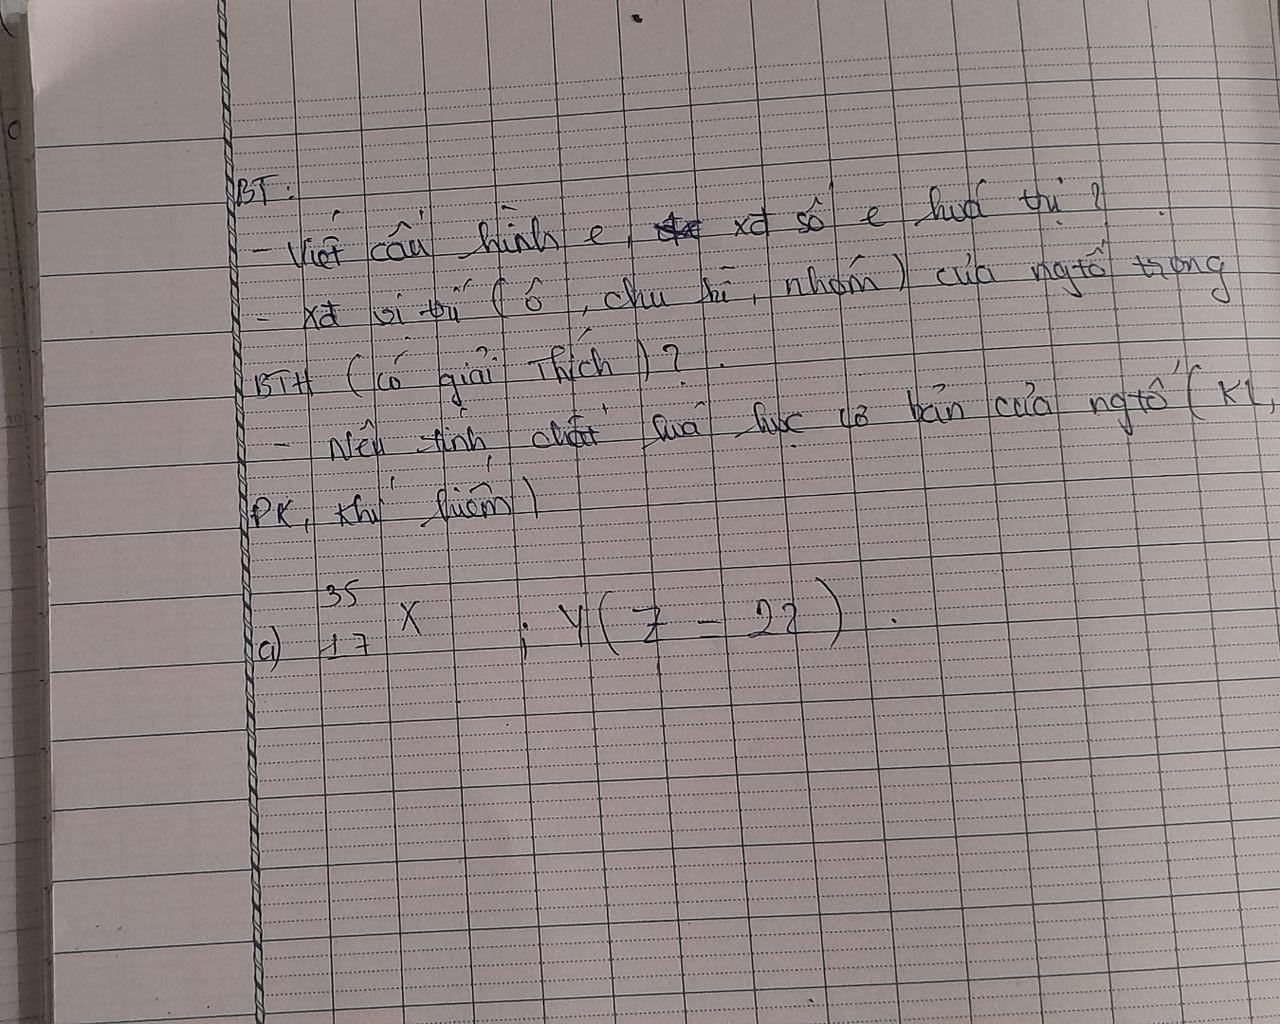 BT:
- Viết cấu hình e, xđ số e hoá trị?
- xđ vị trí (ô, chu kì, nhóm) của ngtố trong
BTH (có giải thích)?
- Nêu tính chất hoá học cơ bản của ngtố (KL,
PK, khí hiếm)
35
a) 17 X ; Y (Z = 22).